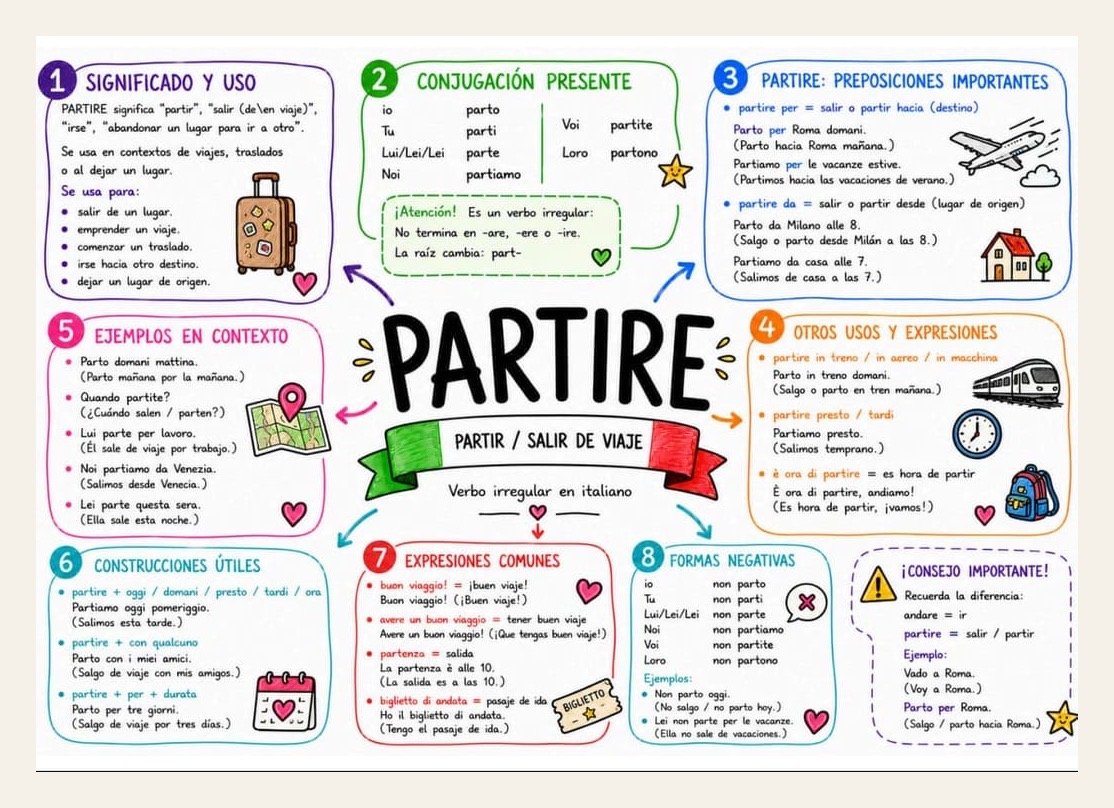 1 SIGNIFICADO Y USO
PARTIRE significa "partir", "salir (de\en viaje)",
"irse", "abandonar un lugar para ir a otro".
Se usa en contextos de viajes, traslados
o al dejar un lugar.
Se usa para:
• salir de un lugar.
• emprender un viaje.
• comenzar un traslado.
• irse hacia otro destino.
• dejar un lugar de origen.
2 CONJUGACIÓN PRESENTE
io parto
Tu parti
Lui/Lei/Lei parte
Noi partiamo
Voi partite
Loro partono
¡Atención! Es un verbo irregular:
No termina en -are, -ere o -ire.
La raíz cambia: part-
3 PARTIRE: PREPOSICIONES IMPORTANTES
• partire per = salir o partir hacia (destino)
Parto per Roma domani.
(Parto hacia Roma mañana.)
Partiamo per le vacanze estive.
(Partimos hacia las vacaciones de verano.)
• partire da = salir o partir desde (lugar de origen)
Parto da Milano alle 8.
(Salgo o parto desde Milán a las 8.)
Partiamo da casa alle 7.
(Salimos de casa a las 7.)
PARTIRE
PARTIR / SALIR DE VIAJE
Verbo irregular en italiano
4 OTROS USOS Y EXPRESIONES
• partire in treno / in aereo / in macchina
Parto in treno domani.
(Salgo o parto en tren mañana.)
• partire presto / tardi
Partiamo presto.
(Salimos temprano.)
• è ora di partire = es hora de partir
È ora di partire, andiamo!
(Es hora de partir, ¡vamos!)
5 EJEMPLOS EN CONTEXTO
• Parto domani mattina.
(Parto mañana por la mañana.)
• Quando partite?
(¿Cuándo salen / parten?)
• Lui parte per lavoro.
(Él sale de viaje por trabajo.)
• Noi partiamo da Venezia.
(Salimos desde Venecia.)
• Lei parte questa sera.
(Ella sale esta noche.)
6 CONSTRUCCIONES ÚTILES
• partire + oggi / domani / presto / tardi / ora
Partiamo oggi pomeriggio.
(Salimos esta tarde.)
• partire + con qualcuno
Parto con i miei amici.
(Salgo de viaje con mis amigos.)
• partire + per + durata
Parto per tre giorni.
(Salgo de viaje por tres días.)
7 EXPRESIONES COMUNES
• buon viaggio! = ¡buen viaje!
Buon viaggio! (¡Buen viaje!)
• avere un buon viaggio = tener buen viaje
Avere un buon viaggio! (¡Que tengas buen viaje!)
• partenza = salida
La partenza è alle 10.
(La salida es a las 10.)
• biglietto di andata = pasaje de ida
Ho il biglietto di andata.
(Tengo el pasaje de ida.)
BIGLIETTO
8 FORMAS NEGATIVAS
io non parto
Tu non parti
Lui/Lei/Lei non parte
Noi non partiamo
Voi non partite
Loro non partono
Ejemplos:
• Non parto oggi.
(No salgo / no parto hoy.)
• Lei non parte per le vacanze.
(Ella no sale de vacaciones.)
¡CONSEJO IMPORTANTE!
Recuerda la diferencia:
andare = ir
partire = salir / partir
Ejemplo:
Vado a Roma.
(Voy a Roma.)
Parto per Roma.
(Salgo / parto hacia Roma.)